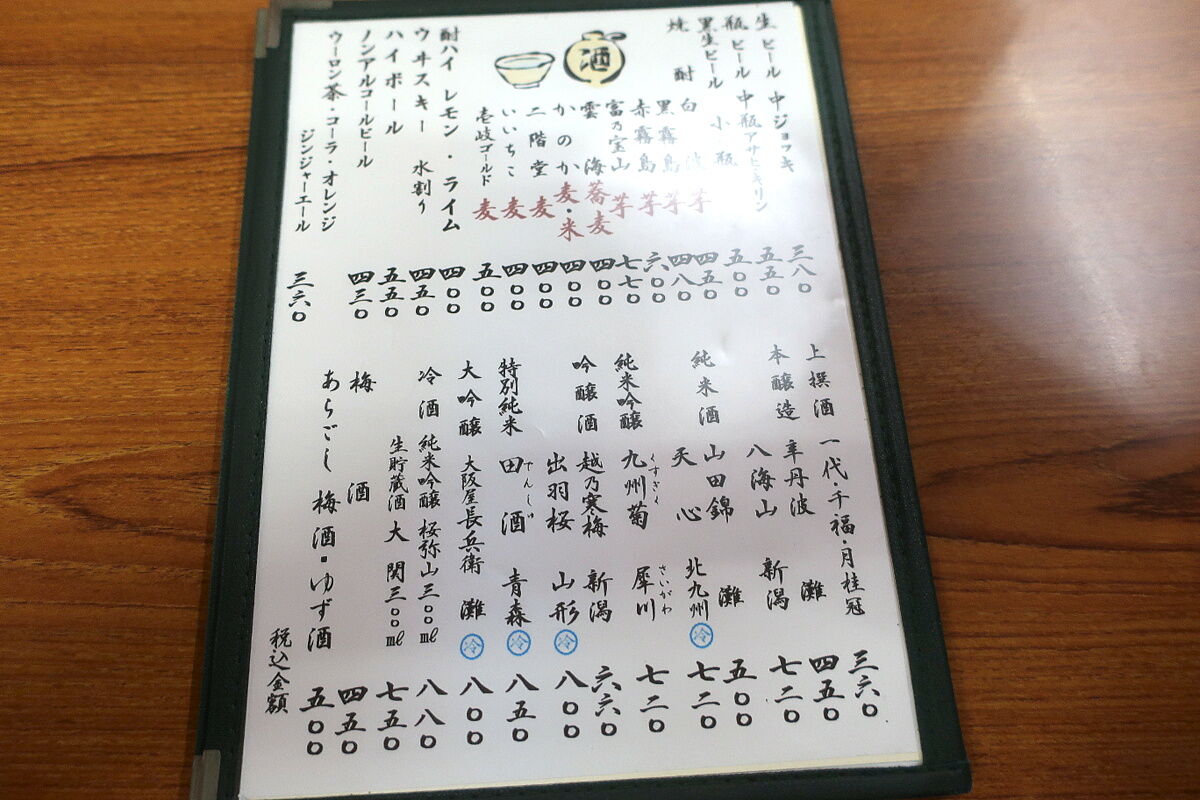 生ビール 中ジョッキ 三八〇
瓶ビール 中瓶アサヒ・キリン 五五〇
黒生ビール 小瓶 五〇〇
焼酎 白波 芋 四五〇
黒霧島 芋 四八〇
赤霧島 芋 六〇〇
富乃宝山 芋 七七〇
雲海 蕎麦 四〇〇
かのか 麦・米 四〇〇
二階堂 麦 四〇〇
いいちこ 麦 四〇〇
壱岐ゴールド 麦 五〇〇
酒
酎ハイ レモン・ライム 四〇〇
ウヰスキー 水割り 四五〇
ハイボール 五五〇
ノンアルコールビール 四三〇
ウーロン茶・コーラ・オレンジ
ジンジャーエール 三六〇
上撰酒 一代・千福・月桂冠 三六〇
本醸造 辛丹波 灘 四五〇
八海山 新潟 七二〇
純米酒 山田錦 灘 五〇〇
天心 北九州 冷 七二〇
純米吟醸 九州菊 くすぎく 犀川 さいがわ 七二〇
吟醸酒 越乃寒梅 新潟 六六〇
出羽桜 山形 冷 八〇〇
特別純米 田酒 でんしゅ 青森 冷 八五〇
大吟醸 大阪屋長兵衛 灘 冷 八〇〇
冷酒 純米吟醸 桜弥山 三〇〇㎖ 八八〇
生貯蔵酒 大関 三〇〇㎖ 七五〇
梅酒 四五〇
あらごし 梅酒・ゆず酒 五〇〇
税込金額